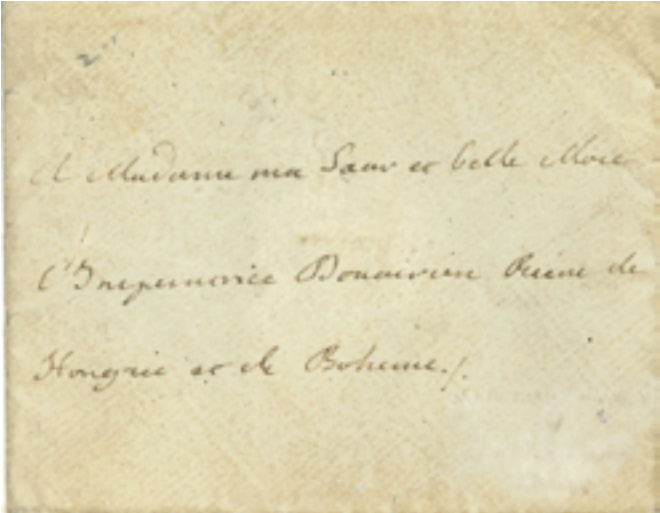 A Madame ma Sœur et belle Mere
l'Imperatrice Douairiere Reine de
Hongrie et de Boheme./.